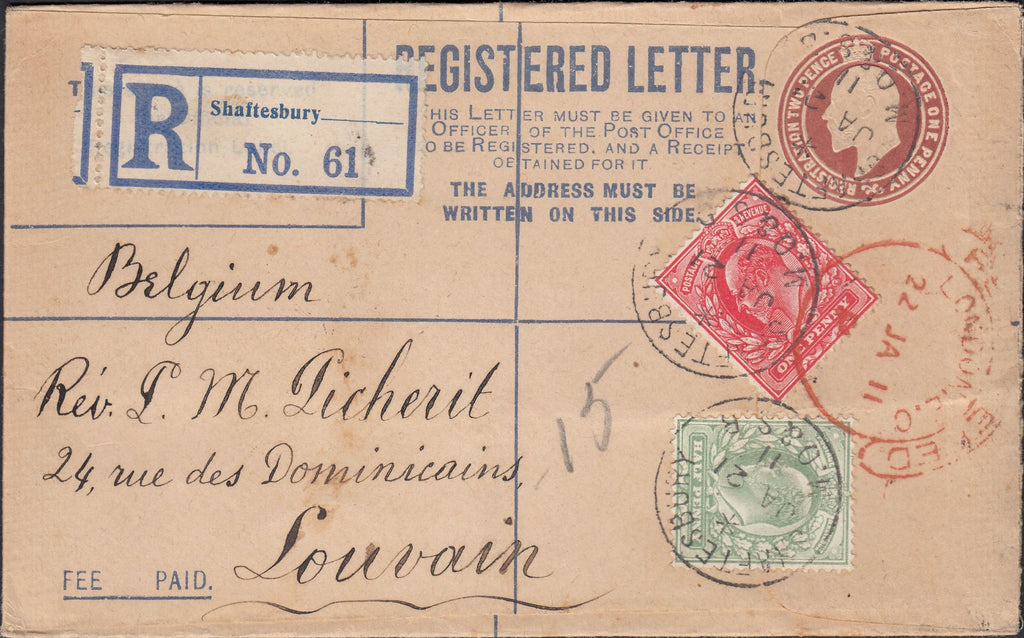 REGISTERED LETTER.
THIS LETTER MUST BE GIVEN TO AN
OFFICER OF THE POST OFFICE
TO BE REGISTERED, AND A RECEIPT
OBTAINED FOR IT
THE ADDRESS MUST BE
WRITTEN ON THIS SIDE.
R
Shaftesbury
No. 61
POSTAGE ONE PENNY
REGISTRATION TWOPENCE
POSTAGE & REVENUE
ONE PENNY
HALF PENNY
SHAFTESBURY
JA 21
11
LONDON E.C.
22 JA 11
Belgium
Rév. P. M. Picherit
24, rue des Dominicains,
Louvain
15
FEE PAID.